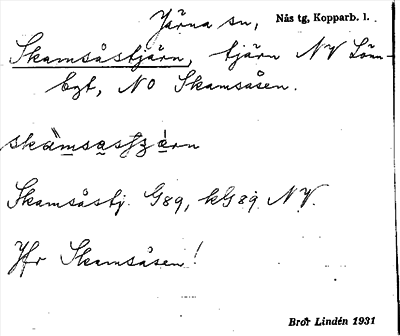 Järna sn, Nås tg, Kopparb. l.
Skamsåstjärn, tjärn NV Löm-
bgt, NO Skamsåsen.
Skamsåstj. G89, kG89 NV.
Jfr Skamsåsen!
Bror Lindén 1931